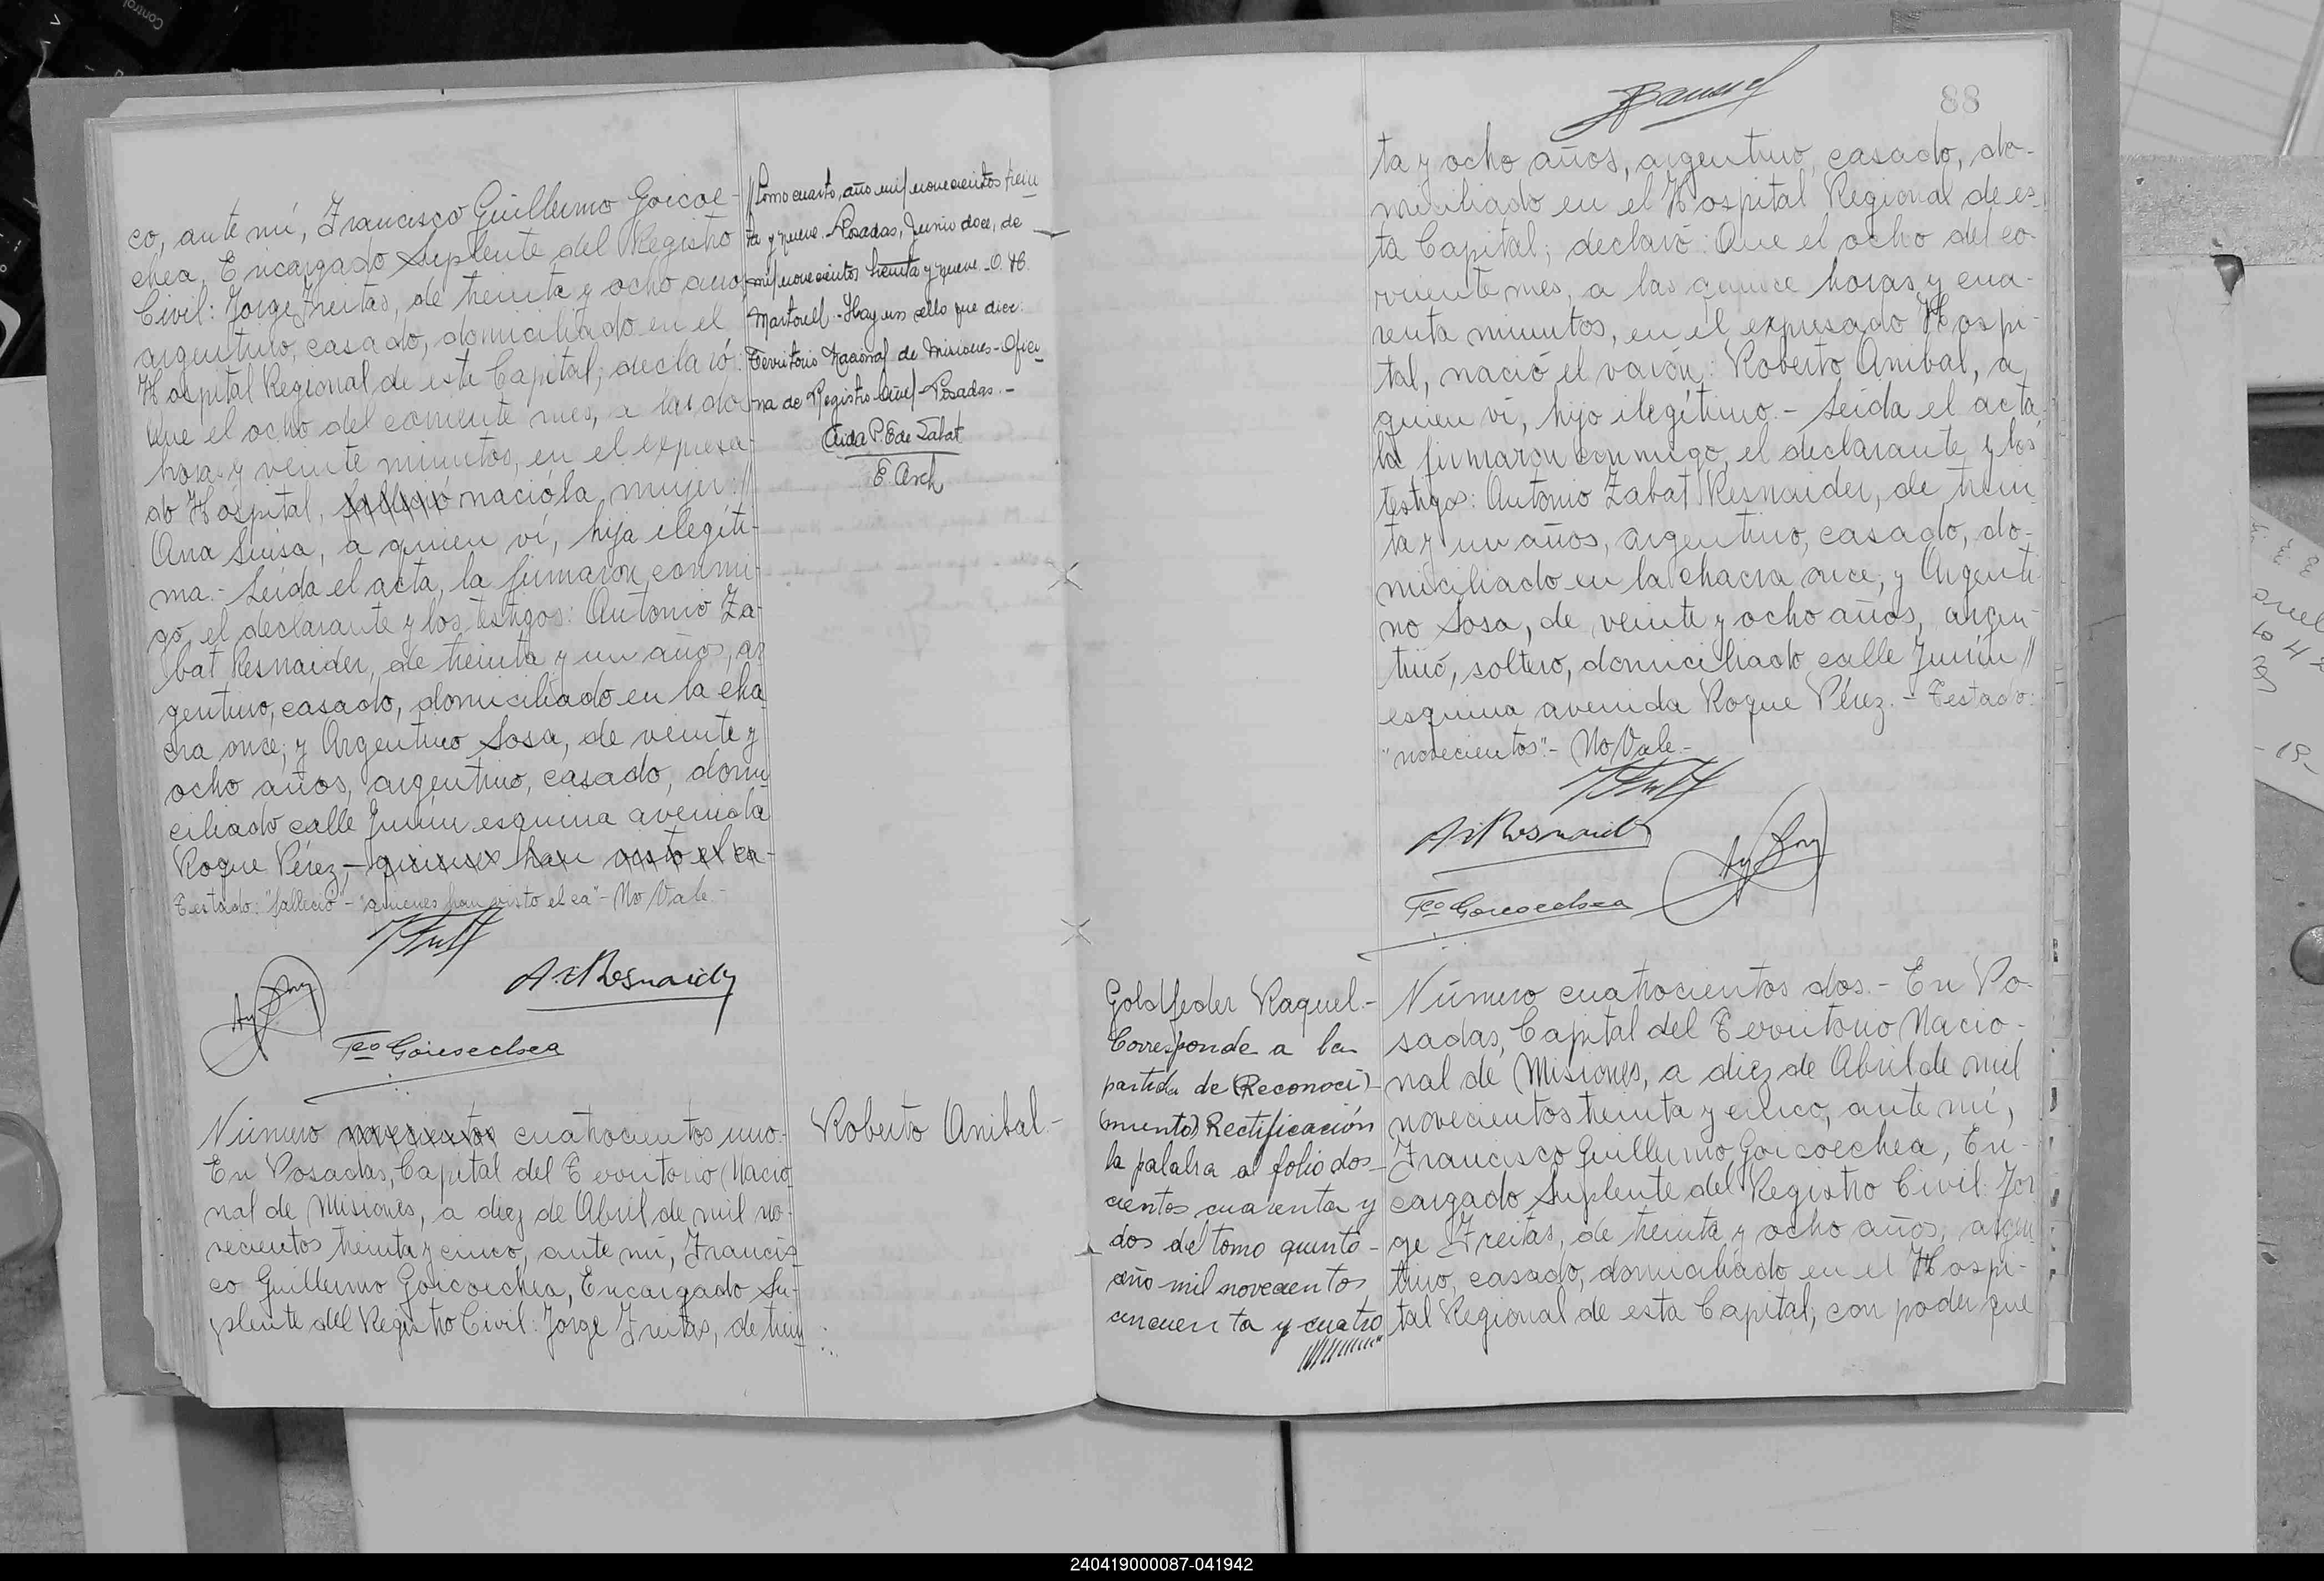 co, ante mí, Francisco Guillermo Goicoe-
chea, Encargado Suplente del Registro
Civil: Jorge Freitas, de treinta y ocho años,
argentino, casado, domiciliado en el
Hospital Regional de esta Capital; declaró:
Que el ocho del corriente mes, a las dos
horas y veinte minutos, en el expresa-
do Hospital, falleció nació la mujer: //
Ana Luisa, a quien ví, hija ilegíti-
ma.- Leída el acta, la firmaron conmi-
go, el declarante y los testigos: Antonio Za-
bat Resnaider, de treinta y un años, ar
gentino, casado, domiciliado en la cha
cra once; y Argentino Sosa, de veinte y
ocho años, argentino, casado, domi
ciliado calle Junín esquina avenida
Roque Pérez,- quienes han visto el ca-
Testado: "falleció" - "quienes han visto el ca" - No Vale.-
Fco Goicoechea
Número cuatrocientos uno.-
En Posadas, Capital del Territorio Nacio
nal de Misiones, a diez de Abril de mil no-
vecientos treinta y cinco, ante mí, Francis
co Guillermo Goicoechea, Encargado Su-
plente del Registro Civil: Jorge Freitas, de trein
// Tomo cuarto, año mil novecientos trein
ta y nueve. Posadas, Junio doce, de
mil novecientos treinta y nueve.- O. H.
Martorell - Hay un sello que dice:
Territorio Nacional de Misiones - Ofici
na de Registro Civil - Posadas.-
Aida P. E de Zabat
E. Arch
Roberto Anibal.-
88
ta y ocho años, argentino, casado, do-
miciliado en el Hospital Regional de es-
ta Capital; declaró: Que el ocho del co-
rriente mes, a las quince horas y cua-
renta minutos, en el expresado Hospi-
tal, nació el varón: Roberto Anibal, a
quien ví, hijo ilegítimo.- Leída el acta,
la firmaron conmigo, el declarante y los
testigos: Antonio Zabat Resnaider, de trein
ta y un años, argentino, casado, do-
miciliado en la chacra once; y Argenti
no Sosa, de veinte y ocho años, argen-
tino, soltero, domiciliado calle Junín //
esquina avenida Roque Pérez.- Testado:
"novecientos".- No Vale.-
Fco Goicoechea
Goldfeder Raquel.-
Corresponde a la
partida de (Reconoci)-
(miento) Rectificación
la palabra al folio dos-
cientos cuarenta y
dos del tomo quinto-
año mil novecientos
cincuenta y cuatro
Número cuatrocientos dos.- En Po-
sadas, Capital del Territorio Nacio-
nal de Misiones, a diez de Abril de mil
novecientos treinta y cinco, ante mí,
Francisco Guillermo Goicoechea, En-
cargado Suplente del Registro Civil: Jor
ge Freitas, de treinta y ocho años, argen
tino, casado, domiciliado en el Hospi-
tal Regional de esta Capital; con poder que
240419000087-041942